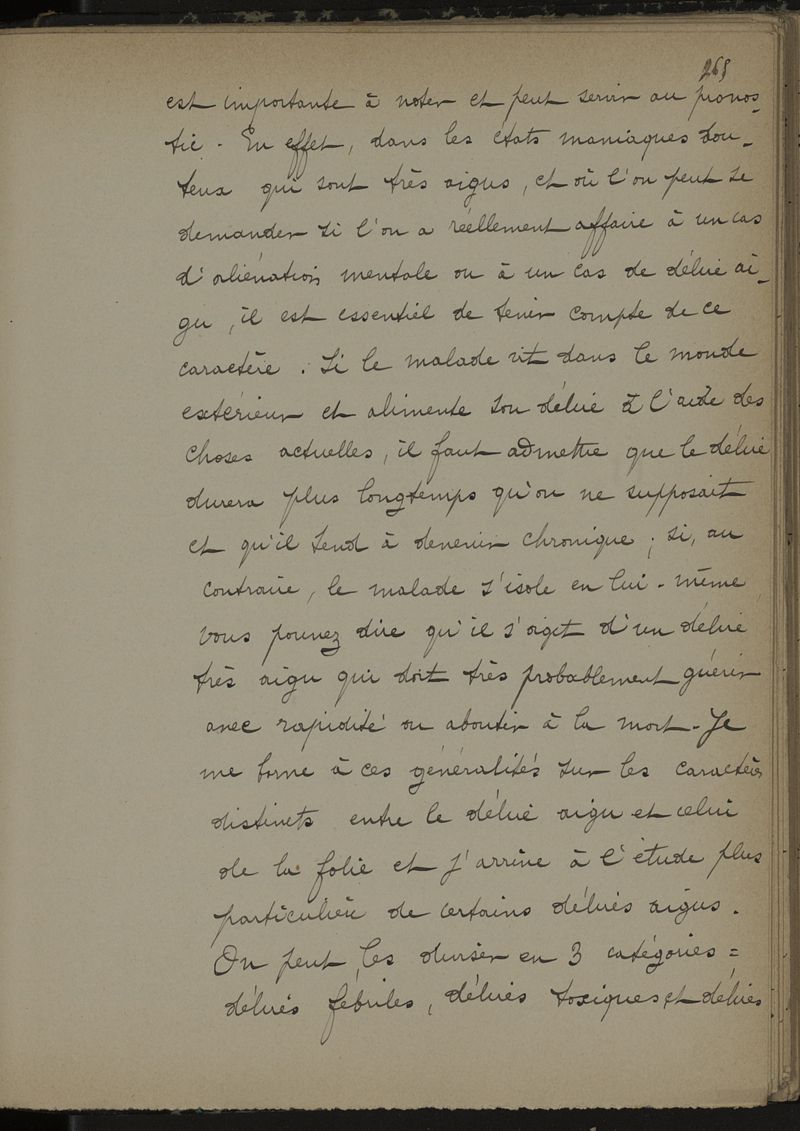 265
est importante à noter et peut servir au pronos-
tic. En effet, dans les états maniaques dou-
teux qui sont très aigus, et où l'on peut se
demander si l'on a réellement affaire à un cas
d'aliénation mentale ou à un cas de délire ai-
gu, il est essentiel de tenir compte de ce
caractère. Si le malade vit dans le monde
extérieur et alimente son délire à l'aide des
choses actuelles, il faut admettre que le délire
durera plus longtemps qu'on ne supposait
et qu'il tend à devenir chronique ; si, au
contraire, le malade s'isole en lui-même,
vous pouvez dire qu'il s'agit d'un délire
très aigu qui doit très probablement guérir
avec rapidité ou aboutir à la mort. Je
me borne à ces généralités sur les caractères
distincts entre le délire aigu et celui
de la folie et j'arrive à l'étude plus
particulière de certains délires aigus.
On peut les diviser en 3 catégories =
délires fébriles, délires toxiques et délires